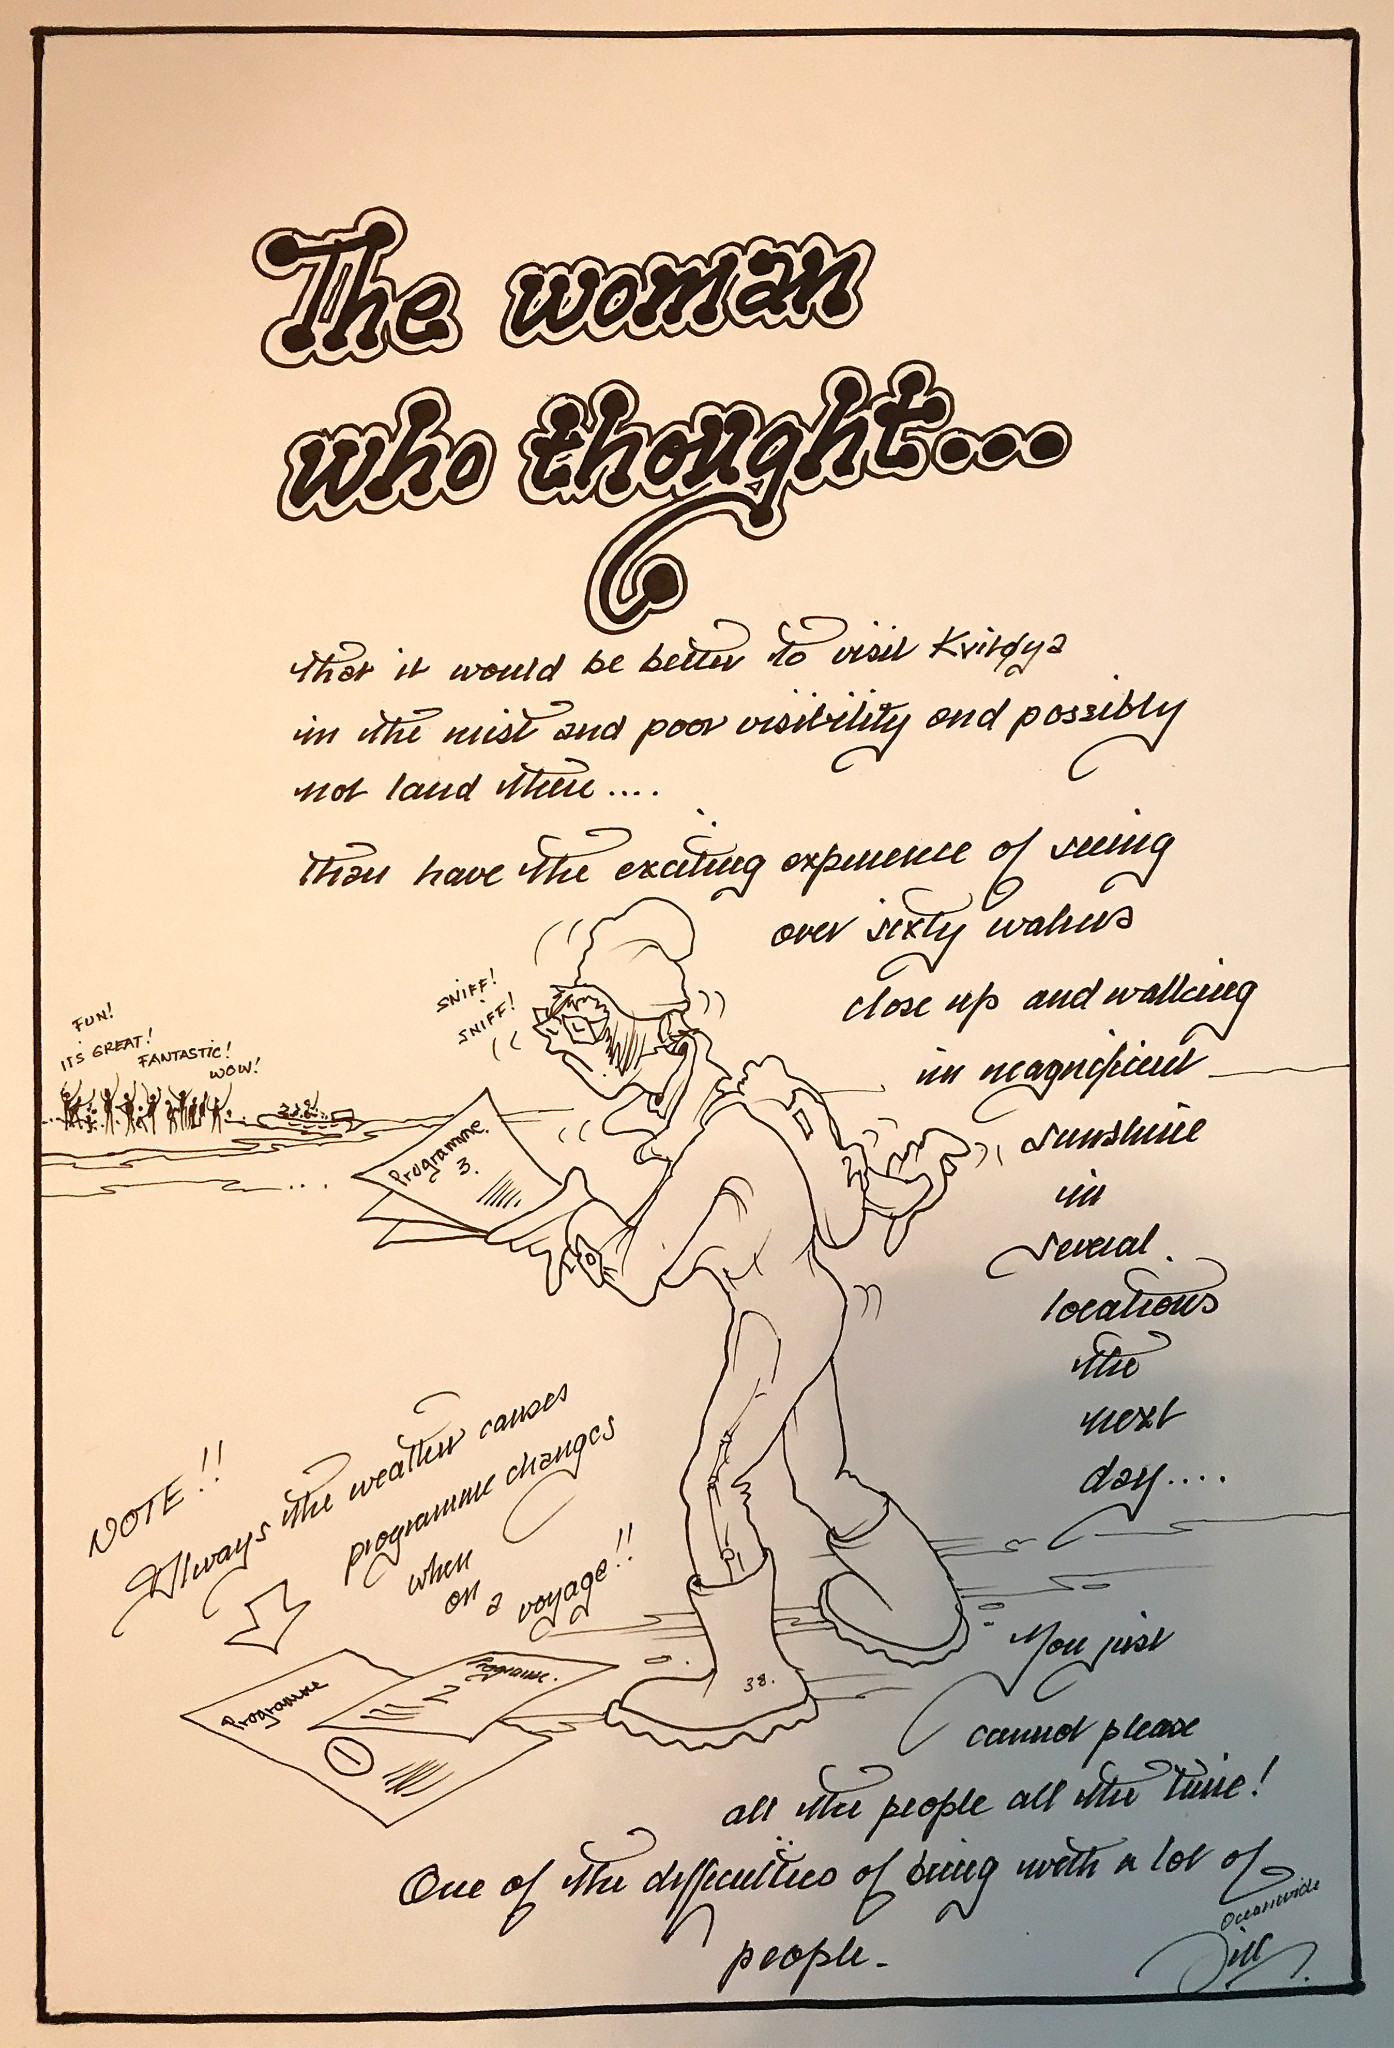 The woman
who thought...
that it would be better to visit Kvitøya
in the mist and poor visibility and possibly
not land there....
than have the exciting experience of seeing
over sixty walrus
close up and walking
in magnificent
sunshine
in
several
locations
the
next
day....
SNIFF!
SNIFF!
FUN!
ITS GREAT!
FANTASTIC!
WOW!
Programme.
3.
NOTE!!
Always the weather causes
programme changes
when
on a voyage!!
Programme
1
Programe.
2
38.
You just
cannot please
all the people all the time!
One of the difficulties of being with a lot of
people.
Oceanwide